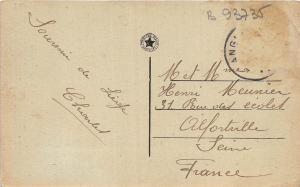 B 93735
Souvenir de
Liège
M et Mme
Henri Meunier
31 Rue des écoles
Alfortville
Seine
France